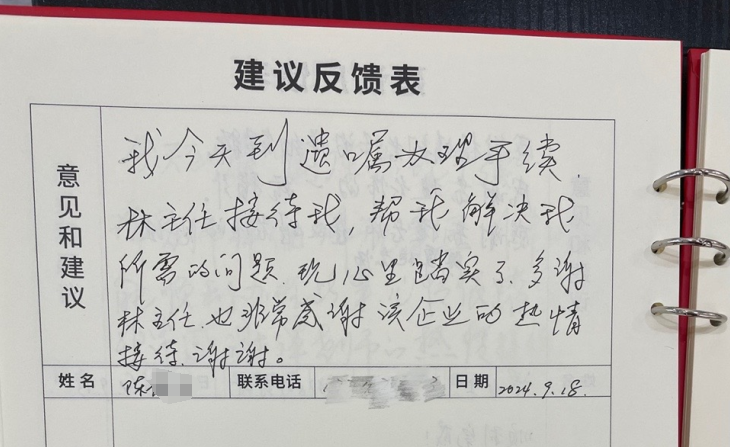 建议反馈表
意见和建议
我今天到遗嘱办理手续.
林主任接待我，帮我解决我
所需的问题.现心里踏实了.多谢
林主任.也非常感谢该企业的热情
接待.谢谢。
姓名 陈 联系电话 日期 2024.9.18.